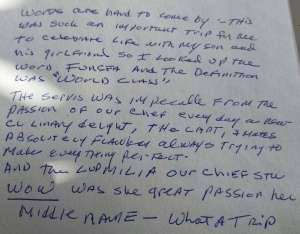 Words are hard to come by - This
was such an important trip for me
to celebrate life with my son and
his girlfriend so I looked up the
word, Fonsea And The Definition
was "World Class"
The servis was impecable from the
passion of our chef every day a new
culinary delight, The Capt, & mates
Absolutely flawless always trying to
make everything perfect.
And the Ludmilia our chief stw
wow was she great passion her
middle name - what a trip